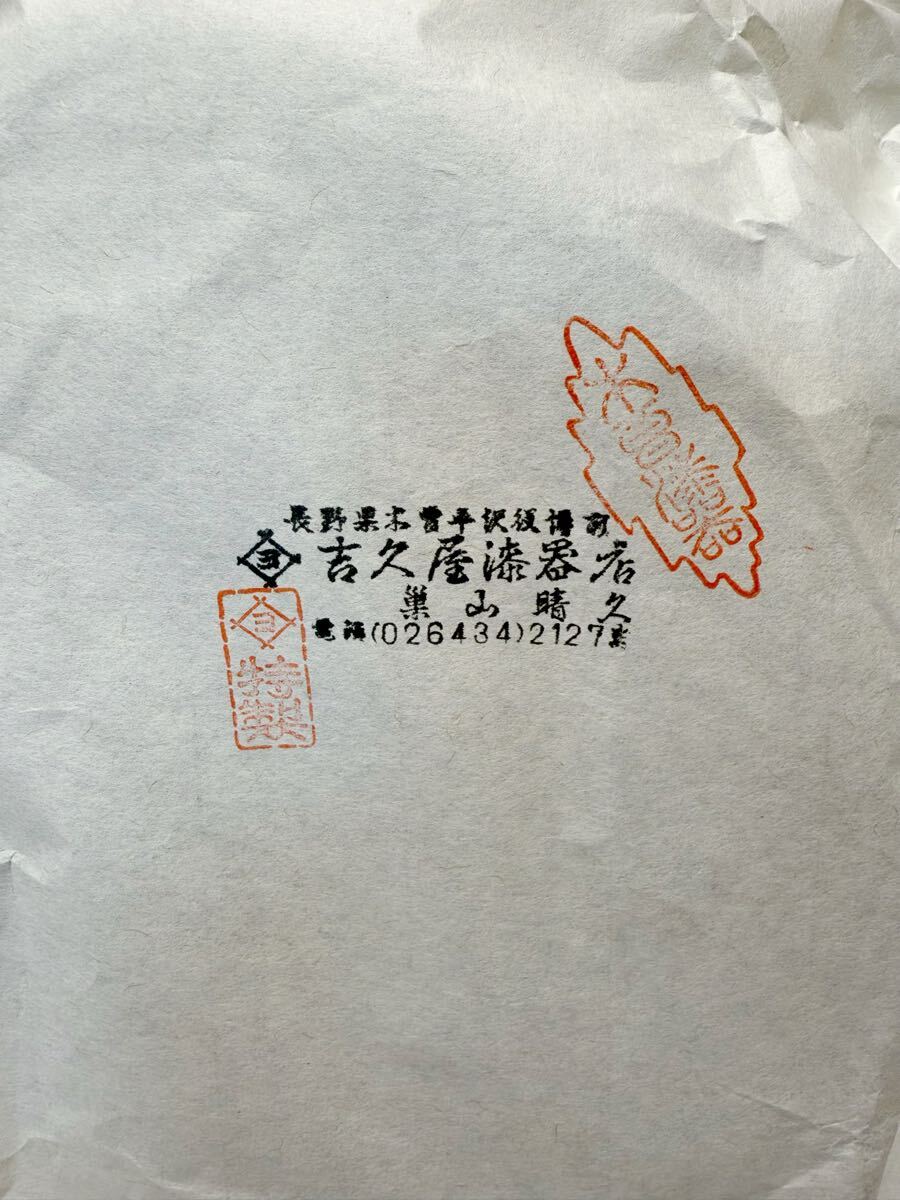 長野県木曽平沢役場前
ヨ 吉久屋漆器店
巣山晴久
電話(026434)2127番
ヨ
特撰
木曽漆器